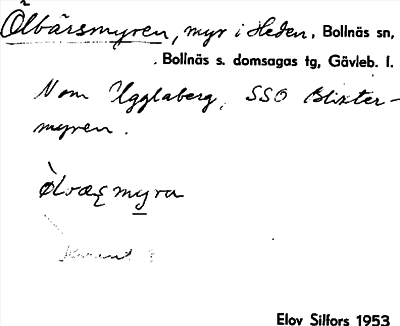 Ölbärsmyren, myr i Heden, Bollnäs sn,
Bollnäs s. domsagas tg, Gävleb. l.
N om Ugglaberg, SSO Blixter-
myren.
myra
Elov Silfors 1953